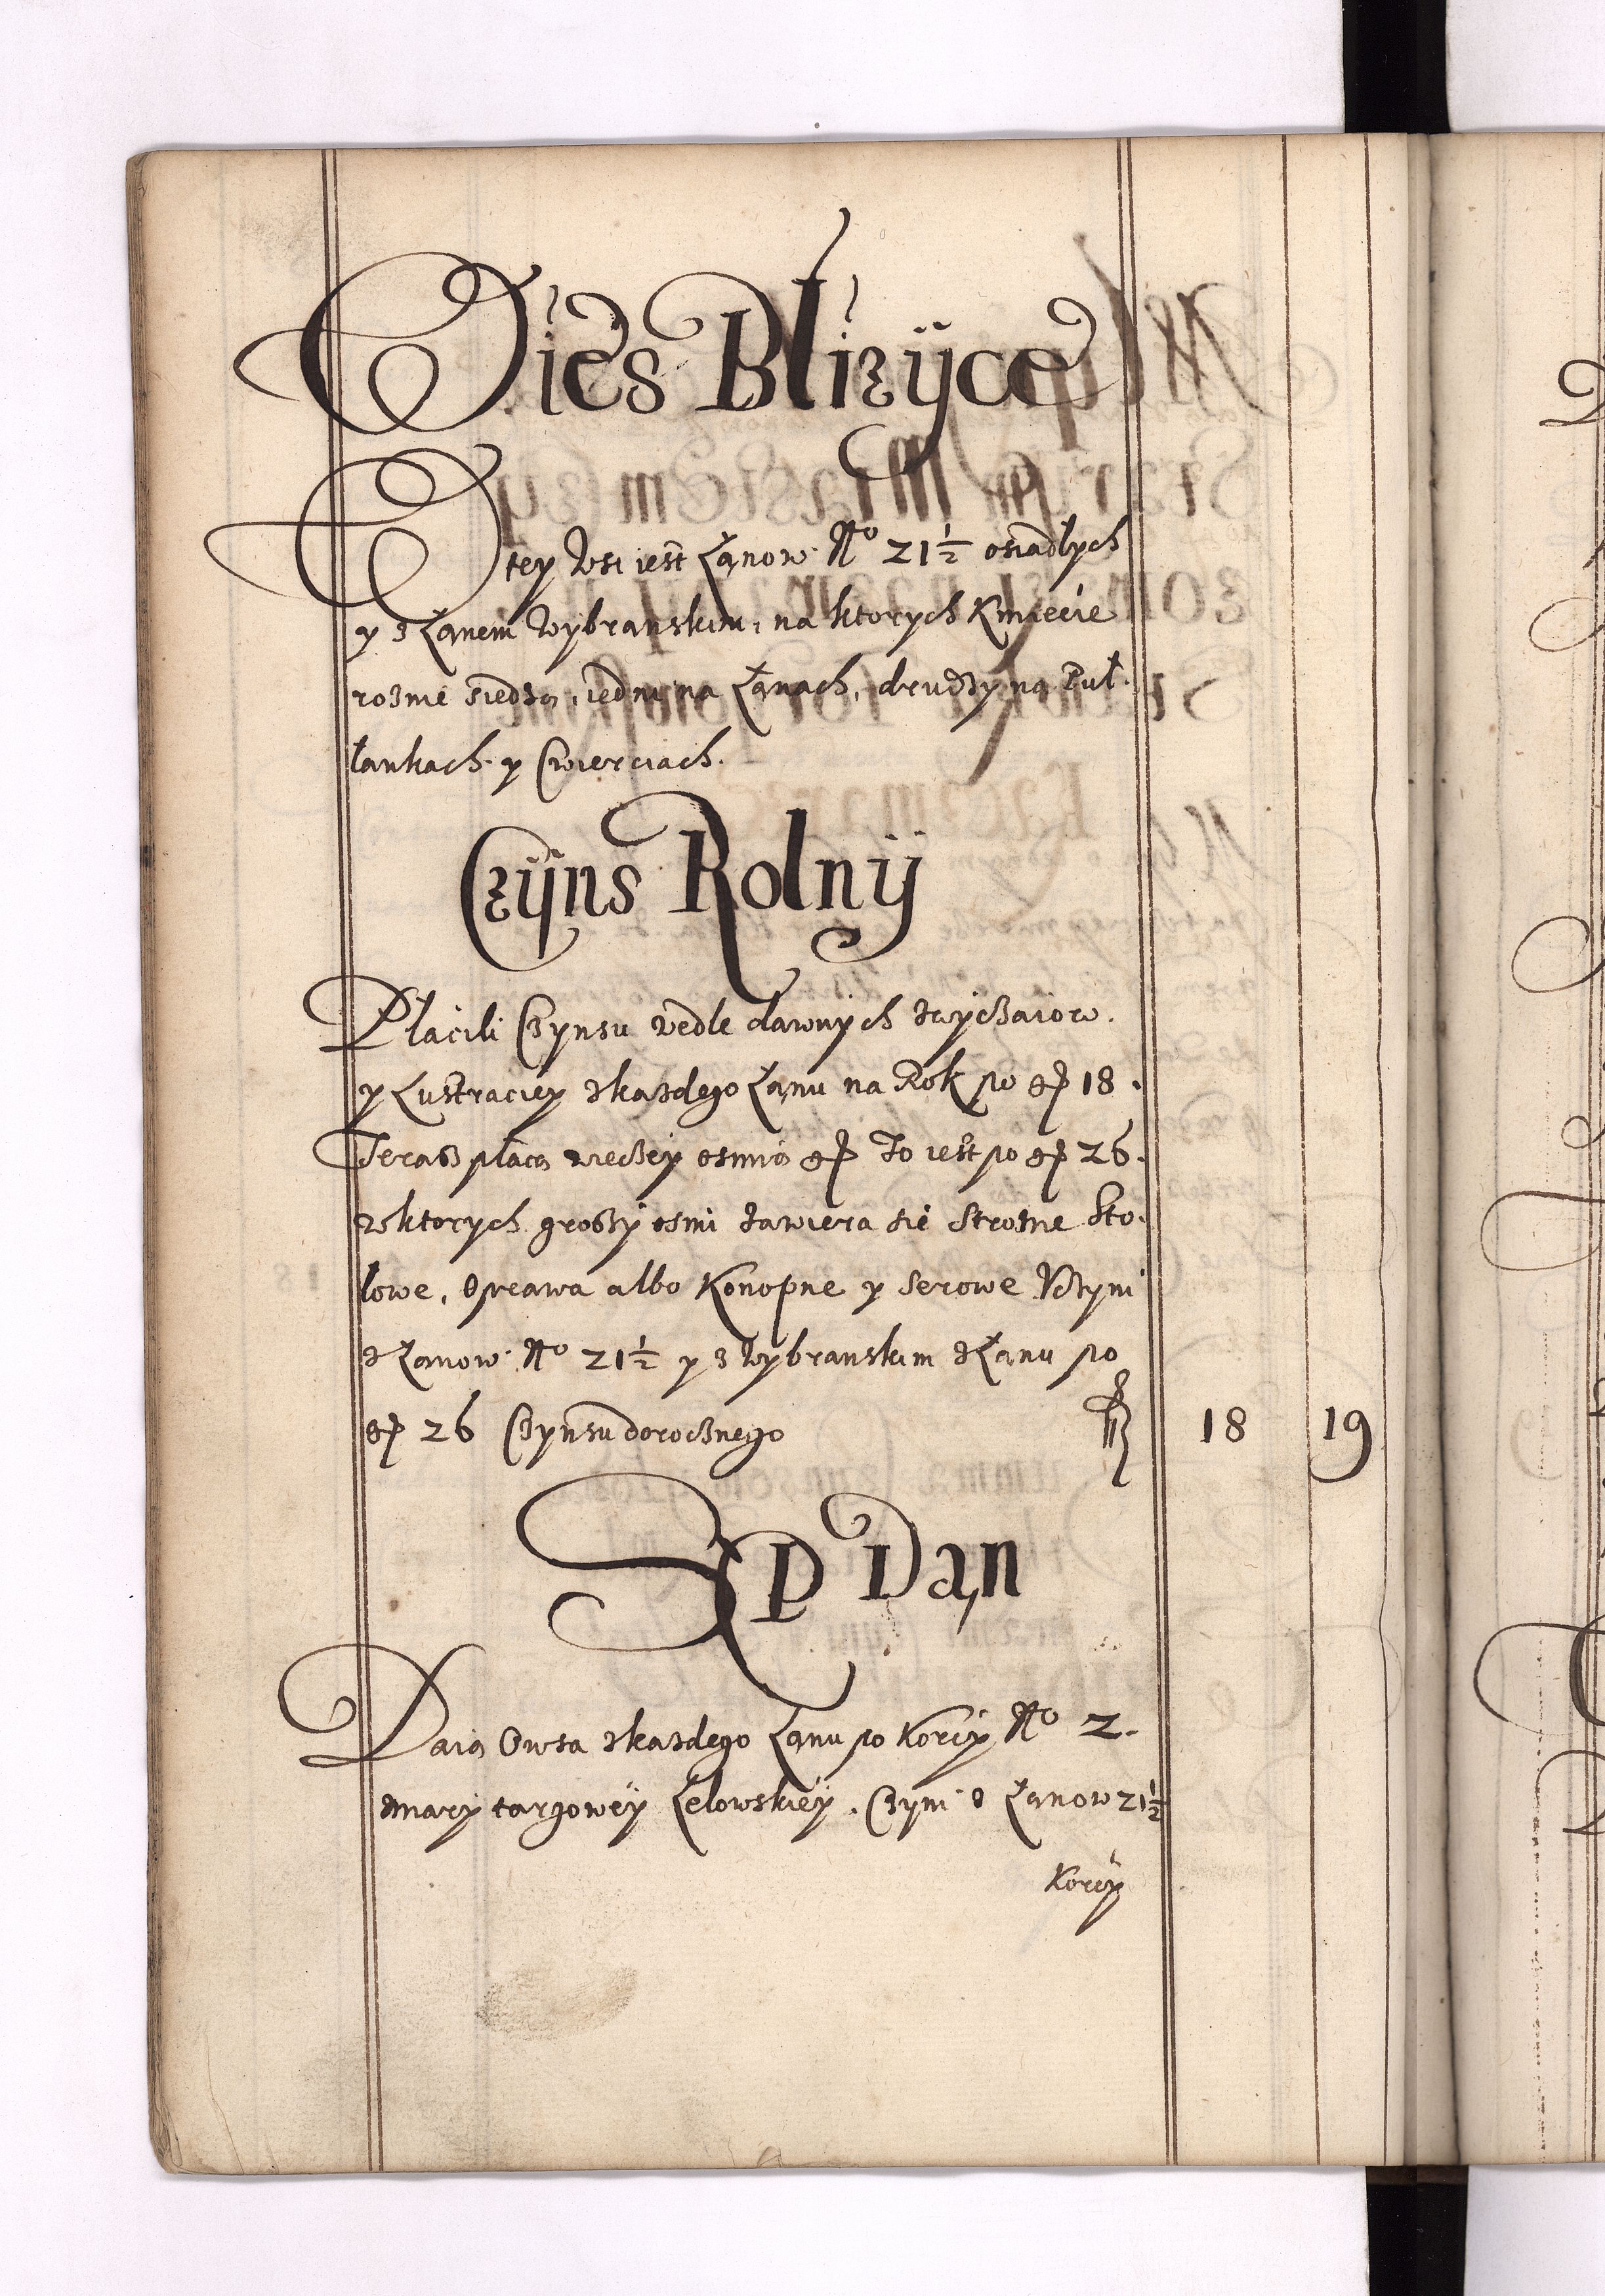 Wies Bliżyce
W tey Wsi iest Łanow No 21½ osiadłych
y z Łanem Wybranskim, na ktorych Kmiecie
rożnie siedzą, iedni na Łanach, drudzy na Puł
łankach y Cwierciach.
Czyns Rolny
Płacili Czynsu wedle dawnych zwyczaiow.
y Lustraciey zkażdego Łanu na Rok po gr 18.
Teraz płacą wieczey osmią gr To iest po gr 26.
wktorych groszy osmi zawiera sie Strożne Sto.
łowe, Oprawa albo Konopne y Serowe Vczyni
z Łanow No 21½ y z Wybranskim z Łanu po
gr 26 Czynsu dorocznego fl 18 19
SEP Dan
Daią Owsa zkażdego Łanu po Korcy No 2.
miary targowey Lelowskiey. Czyni z Łanow 21½
Korcy